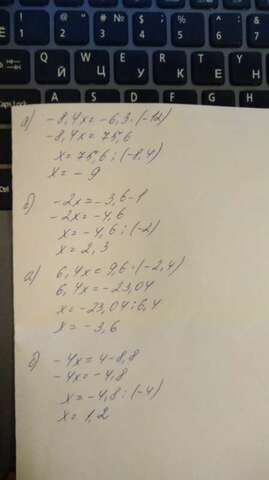 ! 1 " 2 № # 3 ; $ 4 % 5 ^ 6 & 7
Й Q Ц W У E К R Е T Н
Caps Lock
а) -8,4x = -6,3·(-12)
-8,4x = 75,6
x = 75,6:(-8,4)
x = -9
б) -2x = -3,6-1
-2x = -4,6
x = -4,6:(-2)
x = 2,3
а) 6,4x = 9,6·(-2,4)
6,4x = -23,04
x = -23,04:6,4
x = -3,6
б) -4x = 4-8,8
-4x = -4,8
x = -4,8:(-4)
x = 1,2